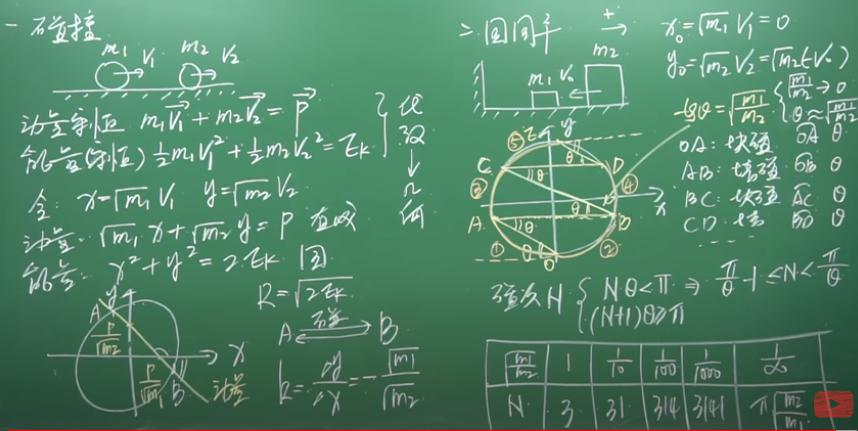 一 碰撞
m₁ V₁ m₂ V₂
动量守恒 m₁V₁ + m₂V₂ = P
能量(守恒) ½m₁V₁² + ½m₂V₂² = Ek
代数
↓
几何
令: x=√m₁ V₁ y=√m₂ V₂
动量: √m₁ x + √m₂ y = P 直线
能量: x² + y² = 2Ek 圆
R = √2Ek
A 碰撞 B
k = Δy/Δx = - √m₁/√m₂
A y
P/√m₂
x
P/√m₁ B 动量
二 圆周率
+ →
m₁ V₀ m₂
x₀ = √m₁ V₁ = 0
y₀ = √m₂ V₂ = √m₂(-V₀)
tgθ = √(m₁/m₂)
√(m₁/m₂) → 0
θ ≈ √(m₁/m₂)
OA: 块碰 OA θ
AB: 墙碰 OB θ
BC: 块碰 AC θ
CD: 墙 BD θ
⑤ E y
C θ θ D
③ ④
x
A θ θ B
① θ θ ②
O
碰次N { N·θ<π
(N+1)θ≥π
⇒ π/θ - 1 ≤ N < π/θ
√(m₁/m₂) 1 1/10 1/100 1/1000 1/∞
N 3 31 314 3141 π√(m₂/m₁)